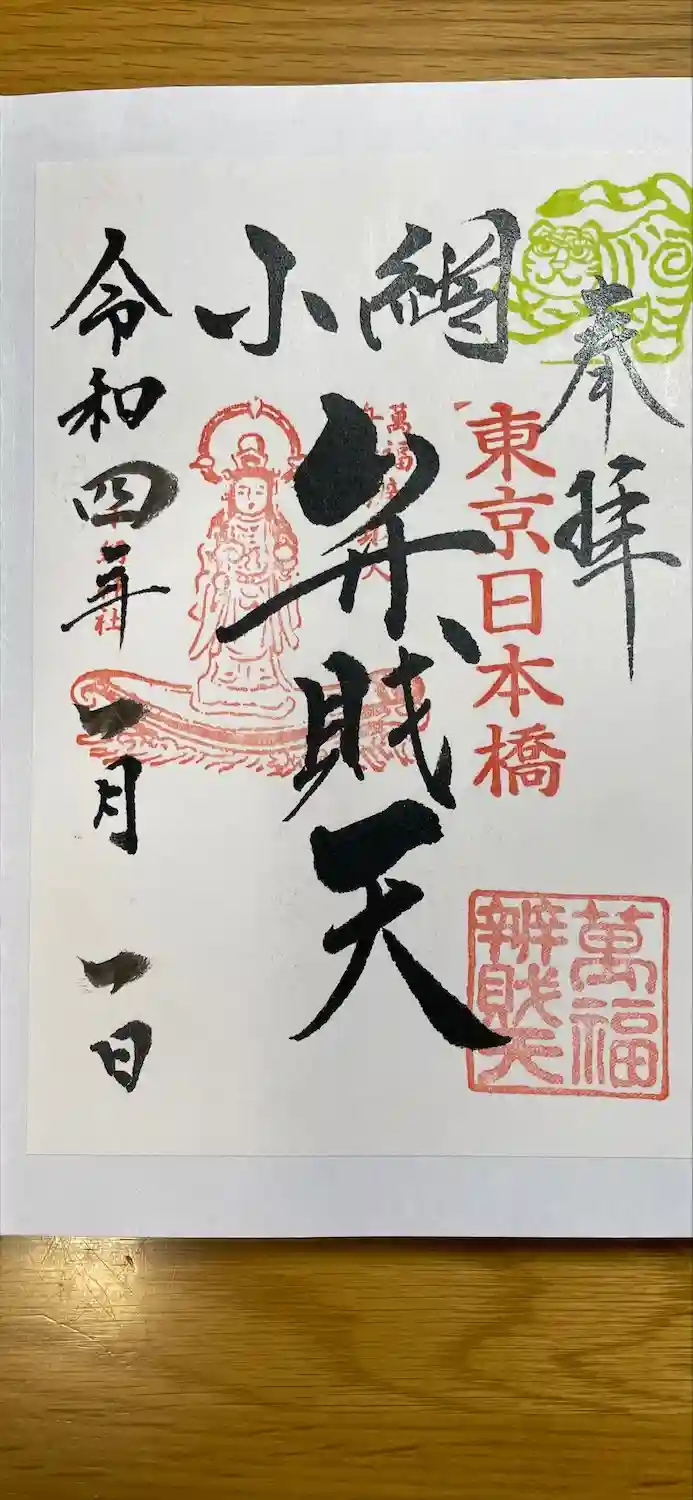 奉拝
東京日本橋
萬福
辨財天
小網
弁財天
令和四年一月一日